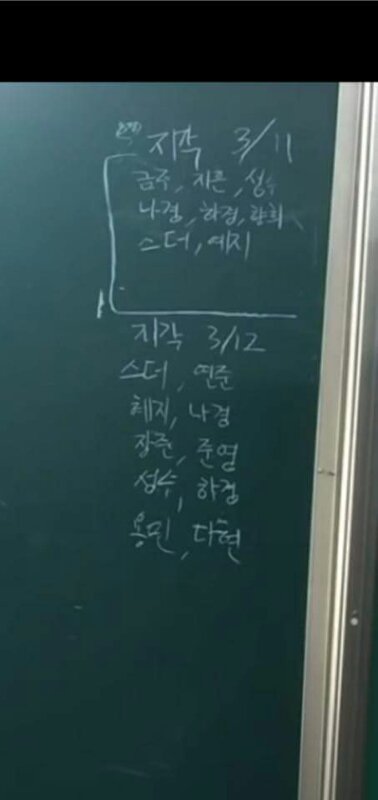 지각 3/11
금주, 지은, 성수
나경, 하경, 향희
스더, 예지
지각 3/12
스더, 연준
혜지, 나경
장준, 준영
성수, 하경
용민, 다현